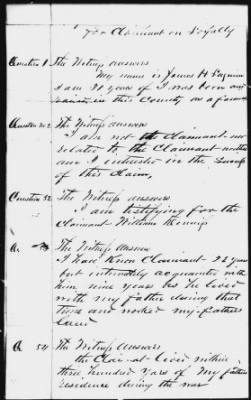 for Claimant on Loyalty
Question 1 The Witness answers
My name is James H
I am 21 years of I was born and
in this County on a farm
Question No 2 The Witness answers
I am not the Claimant nor
related to the Claimant neither
am I interested in the success
of this Claim,
Question 52 The Witness answers
I am testifying for the
Claimant William
Q The Witness Answers
I have Known Claimant 22 years
but intimately acquainted with
him nine years he lived
with my father during that
time and worked my fathers
land
Q 54 The Witness Answers
the lived within
three hundred yards of my fathers
residence during the war